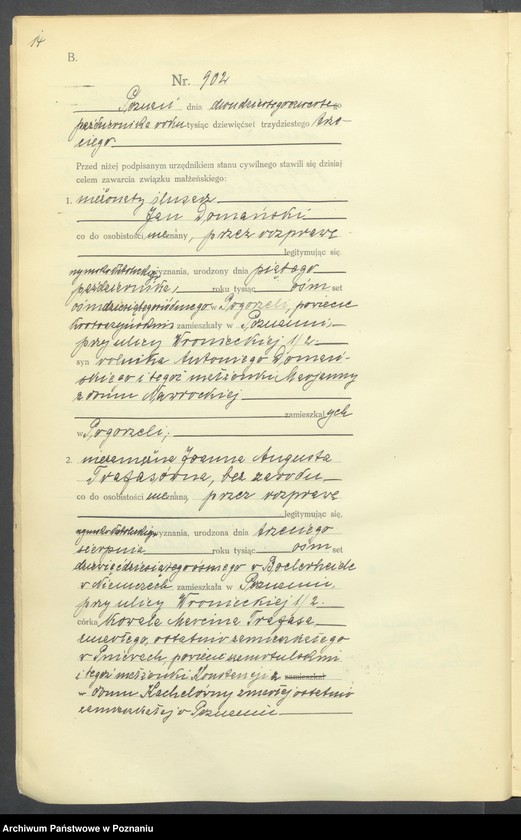 14
B.
Nr. 902
Poznań dnia dwudziestego go
października roku tysiąc dziewięćset trzydziestego trze-
ciego
Przed niżej podpisanym urzędnikiem stanu cywilnego stawili się dzisiaj
celem zawarcia związku małżeńskiego:
1. nieżonaty ślusarz
Jan Domański
co do osobistości nieznany, przez rozprawę
legitymując się,
rzymsko katolickiej wyznania, urodzony dnia piątego
października, roku tysiąc ośm set
w Pogorzeli, powiecie
krotoszyńskim zamieszkały w Poznaniu,
przy ulicy Wronieckiej 1/2.
syn rolnika Antoniego Domań-
skiego i tegoż małżonki Marjanny
z domu Nawrockiej
zamieszkałych
w Pogorzeli,
2. niezamężna Joanna Augusta
bez zawodu
co do osobistości nieznana, przez rozprawę
legitymując się,
rzymsko katolickiej wyznania, urodzona dnia trzeciego
sierpnia roku tysiąc ośm set
dziewięćdziesiątego ósmego w
w Niemczech zamieszkała w Poznaniu,
przy ulicy Wronieckiej 1/2.
córka kowala Marcina
zmarłego, ostatnio zamieszkałego
w Pniewach, powiecie szamotulskim
i tegoż małżonki Konstancji z zamieszkał
domu zmarłej ostatnio
zamieszkałej w Poznaniu
Archiwum Państwowe w Poznaniu